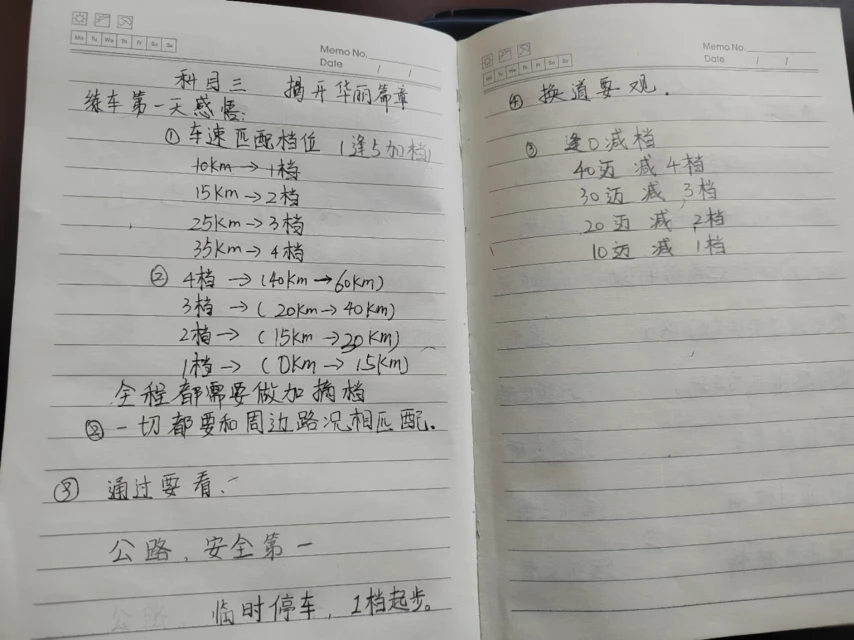 Mo Tu We Th Fr Sa Su
Memo No.
Date / /
科目三 揭开华丽篇章
练车第一天感悟:
① 车速匹配档位 (逢5加档)
10km→1档
15km→2档
25km→3档
35km→4档
② 4档→(40km→60km)
3档→(20km→40km)
2档→(15km→20km)
1档→(0km→15km)
全程都需要做加摘档
② 一切都要和周边路况相匹配.
③ 通过要看:
公路、安全第一
临时停车,1档起步。
Mo Tu We Th Fr Sa Su
Memo No.
Date / /
④ 换道要观.
逢0减档
40迈 减 4档
30迈 减 3档
20迈 减 2档
10迈 减 1档